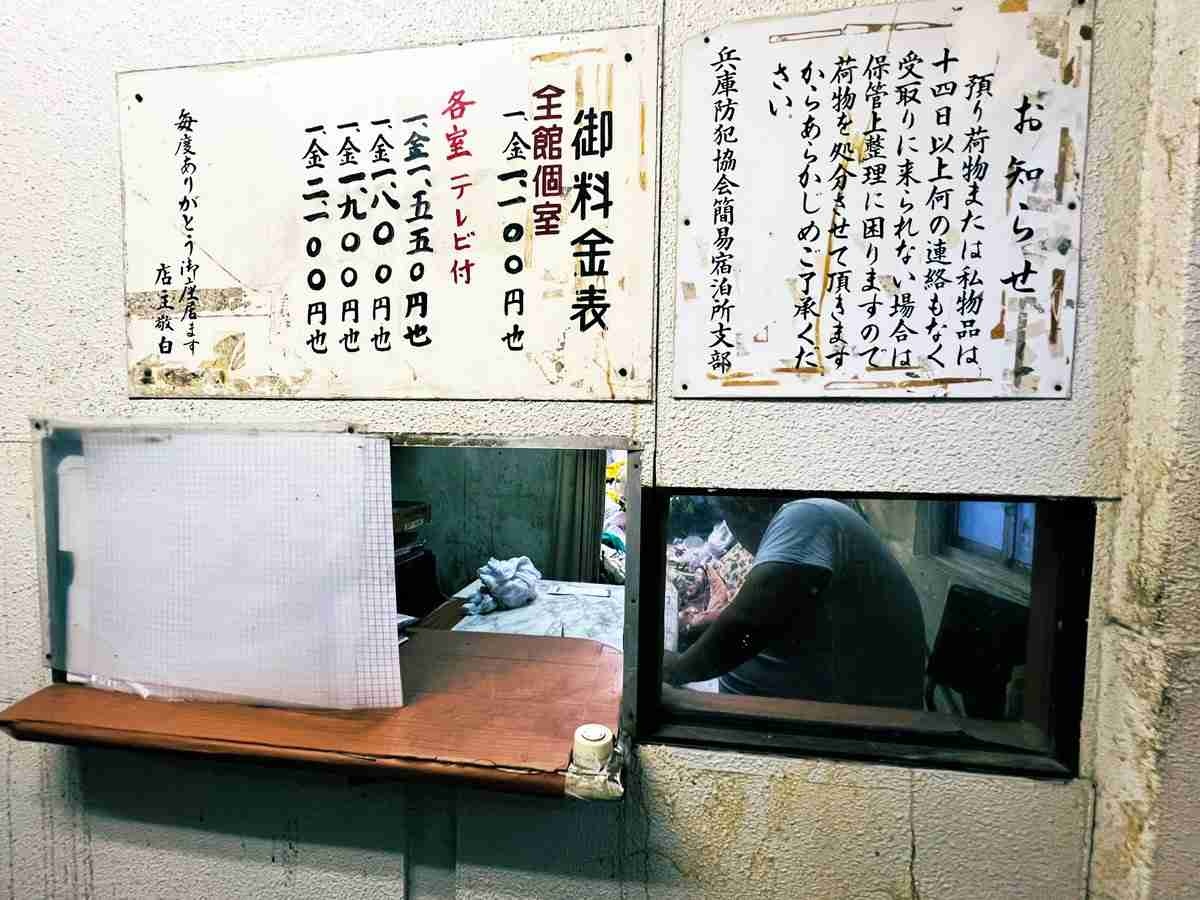 お知らせ
預り荷物または私物品は、
十四日以上何の連絡もなく
受取りに来られない場合は
保管上整理に困りますので
荷物を処分させて頂きます
からあらかじめご了承くだ
さい。
兵庫防犯協会簡易宿泊所支部
御料金表
全館個室
一、金一、一〇〇円也
各室テレビ付
一、金一、五五〇円也
一、金一、八〇〇円也
一、金一、九〇〇円也
一、金二、一〇〇円也
毎度ありがとう御座居ます
店主敬白